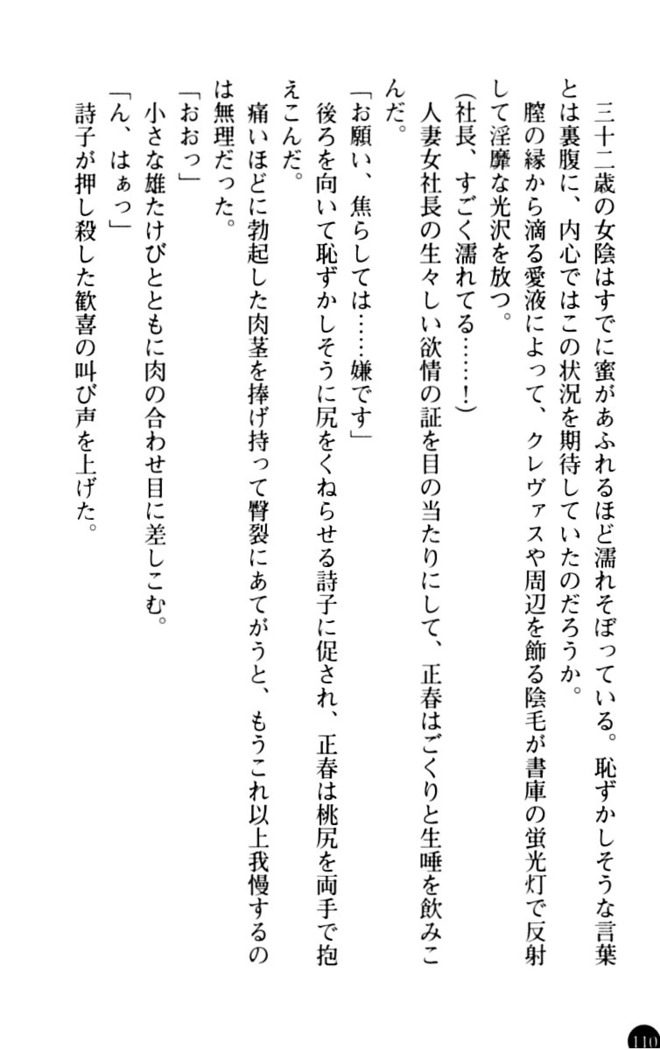 三十二歳の女陰はすでに蜜があふれるほど濡れそぼっている。恥ずかしそうな言葉
とは裏腹に、内心ではこの状況を期待していたのだろうか。
膣の縁から滴る愛液によって、クレヴァスや周辺を飾る陰毛が書庫の蛍光灯で反射
して淫靡な光沢を放つ。
(社長、すごく濡れてる……！)
人妻女社長の生々しい欲情の証を目の当たりにして、正春はごくりと生唾を飲みこ
んだ。
「お願い、焦らしては……嫌です」
後ろを向いて恥ずかしそうに尻をくねらせる詩子に促され、正春は桃尻を両手で抱
えこんだ。
痛いほどに勃起した肉茎を捧げ持って臀裂にあてがうと、もうこれ以上我慢するの
は無理だった。
「おおっ」
小さな雄たけびとともに肉の合わせ目に差しこむ。
「ん、はぁっ」
詩子が押し殺した歓喜の叫び声を上げた。
110